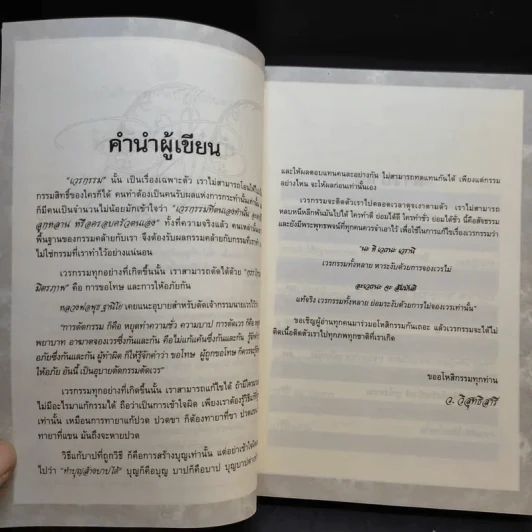 คำนำผู้เขียน
"เวรกรรม" นั้น เป็นเรื่องเฉพาะตัว เราไม่สามารถโอนให้
กรรมสิทธิ์ของใครก็ได้ คนทำต้องเป็นคนรับผลแห่งการกระทำนั้น
ก็มีคนเป็นจำนวนไม่น้อยมักเข้าใจว่า "เวรกรรมที่ตนเองทำนั้น
ลูกหลาน หรือครอบครัวตนเอง" ทั้งที่ความจริงแล้ว คนเหล่านั้น
พื้นฐานของกรรมคล้ายกับเรา จึงต้องรับผลกรรมคล้ายกับที่เรา
ไม่ใช่กรรมที่เราทำไว้อย่างแน่นอน
เวรกรรมทุกอย่างที่เกิดขึ้นนั้น เราสามารถตัดได้ด้วย
มิตรภาพ" คือ การขอโทษ และการให้อภัยกัน
หลวงพ่อพุธ ฐานิโย เคยแนะอุบายสำหรับตัดเจ้ากรรมนายเวรไว้
"การตัดกรรม ก็คือ หยุดทำความชั่ว ความบาป การตัดเวร ก็คือ
พยาบาท อาฆาตจองเวรซึ่งกันและกัน คือไม่แก้แค้นซึ่งกันและกัน
อภัยซึ่งกันและกัน ผู้ทำผิด ก็ให้รู้จักคำว่า ขอโทษ ผู้ถูกขอโทษ
ให้อภัย อันนี้ เป็นอุบายตัดกรรมตัดเวร"
เวรกรรมทุกอย่างที่เกิดขึ้นนั้น เราสามารถแก้ไขได้
ไม่มีอะไรมาแก้กรรมได้ ถือว่าเป็นการเข้าใจผิด เพียงแต่เราต้องรู้วิธี
เท่านั้น เหมือนการทายาแก้ปวด ปวดขา ก็ต้องทายาที่ขา
ทายาที่แขน มันถึงจะหายปวด
วิธีแก้บาปที่ถูกวิธี ก็คือการสร้างบุญเท่านั้น แต่อย่าเข้าใจ
ไปว่า "ทำบุญล้างบาปได้" บุญก็คือบุญ บาปก็คือบาป
และให้ผลตอบแทนคนละอย่างกัน ไม่สามารถทดแทนกันได้ เพียงแต่กรรม
อย่างไหน จะให้ผลก่อนเท่านั้นเอง
เวรกรรมจะติดตัวเราไปตลอดเวลาดุจเงาตามตัว เราไม่สามารถ
หลบหนีหลีกพ้นมันไปได้ ใครทำดี ย่อมได้ดี ใครทำชั่ว ย่อมได้ชั่ว นี่คือสัจธรรม
และยังมีพระพุทธพจน์ที่ทุกคนควรจำเอาไว้ เพื่อใช้ในการแก้ไขเรื่องเวรกรรมว่า
"นะ หิ เวเรนะ เวรานิ
เวรกรรมทั้งหลาย หาระงับด้วยการจองเวรไม่
อะเวเรนะ จะ สัมมันติ
แท้จริง เวรกรรมทั้งหลาย ย่อมระงับด้วยการไม่จองเวรเท่านั้น"
ขอเชิญผู้อ่านทุกคนมาร่วมอโหสิกรรมกันเถอะ แล้วเวรกรรมจะได้ไม่
ติดเนื้อติดตัวเราไปทุกภพทุกชาติที่เราเกิด
ขออโหสิกรรมทุกท่าน
ว. วิสุทธิสารี